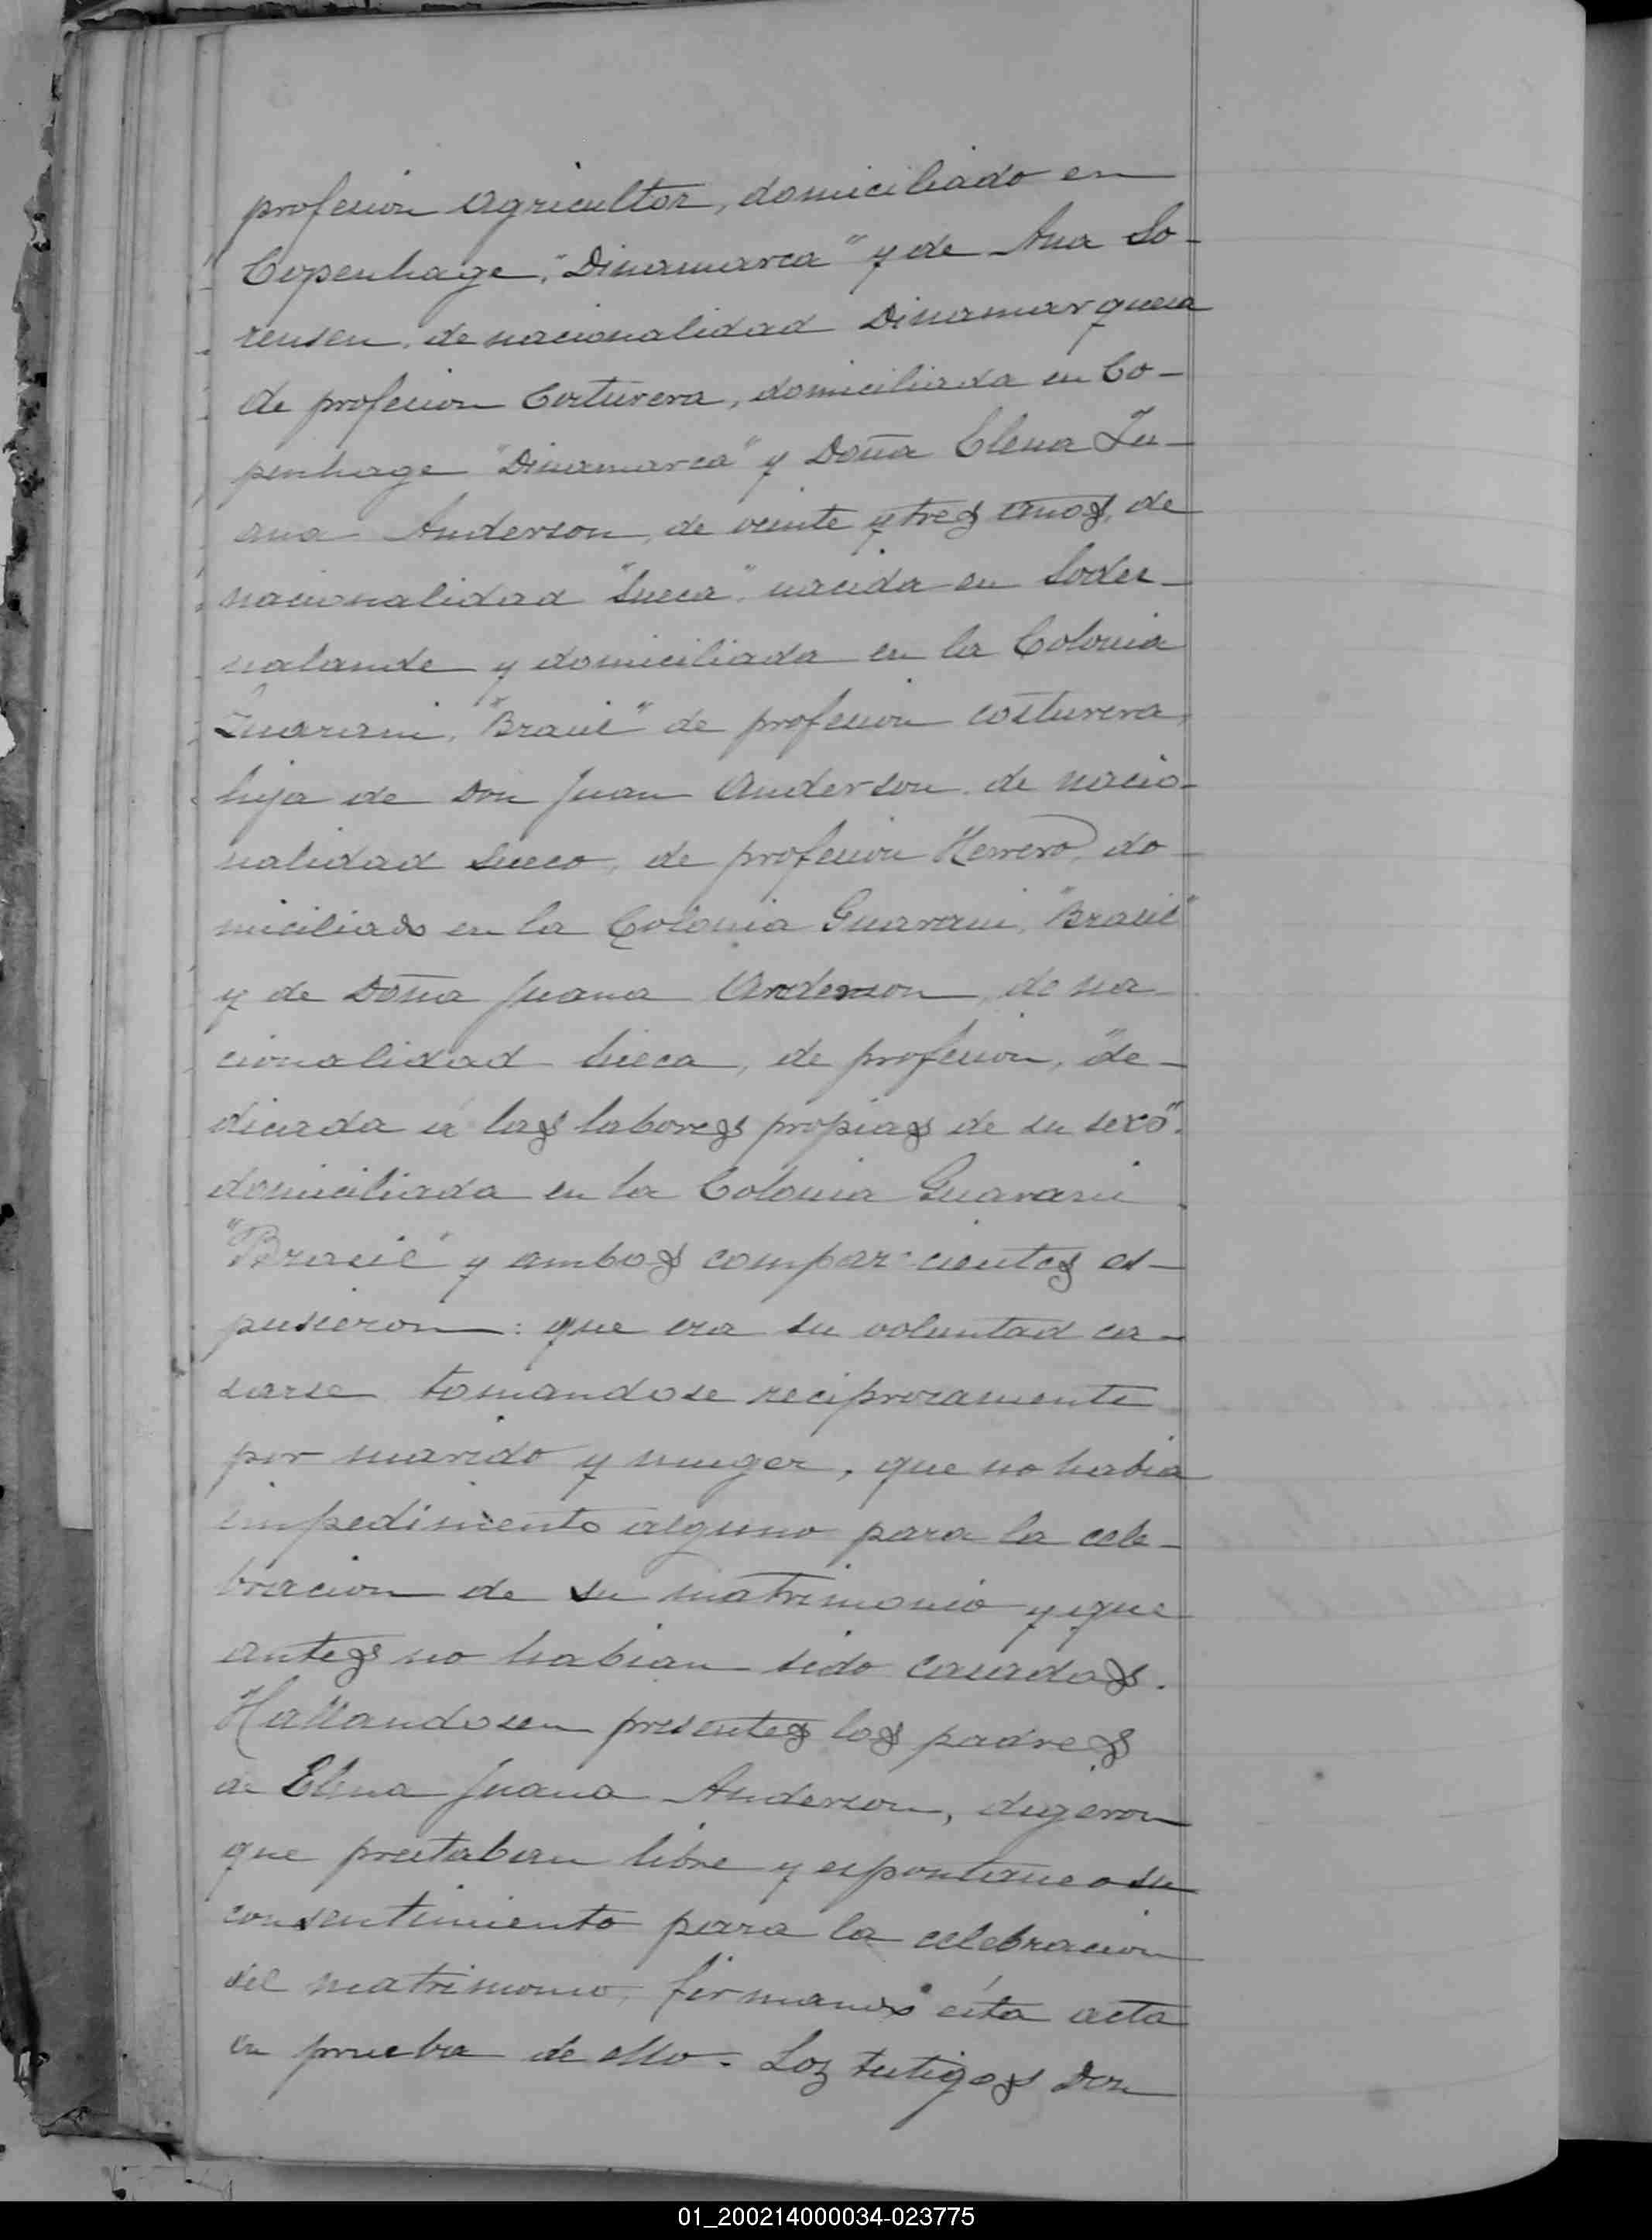 profesion Agricultor, domiciliado en
Copenhage, "Dinamarca" y de Ana So-
rensen, de nacionalidad Dinamarquesa
de profesion Costurera, domiciliada en Co-
penhage "Dinamarca" y Doña Elena Ju-
ana Anderson, de veinte y tres años, de
nacionalidad "Sueca", nacida en Soder-
nalande y domiciliada en la Colonia
Guarani, "Brasil" de profesion costurera,
hija de Don Juan Anderson de nacio-
nalidad Sueco, de profesion Herrero, do-
miciliado en la Colonia Guarani, "Brasil"
y de Doña Juana Anderson, de na-
cionalidad Sueca, de profesion, "de-
dicada á las labores propias de su sexo".
domiciliada en la Colonia Guarani
"Brasil" y ambos comparecientes es-
pusieron: que era su voluntad ca-
sarse tomandose reciprocamente
por marido y muger, que no habia
impedimento alguno para la cele-
bracion de su matrimonio y que
antes no habian sido casados.
Hallandosen presentes los padres
de Elena Juana Anderson, digeron
que prestaban libre y espontaneo su
consentimiento para la celebracion
del matrimonio, firmando ésta acta
en prueba de ello. Los testigos Don
01_200214000034-023775